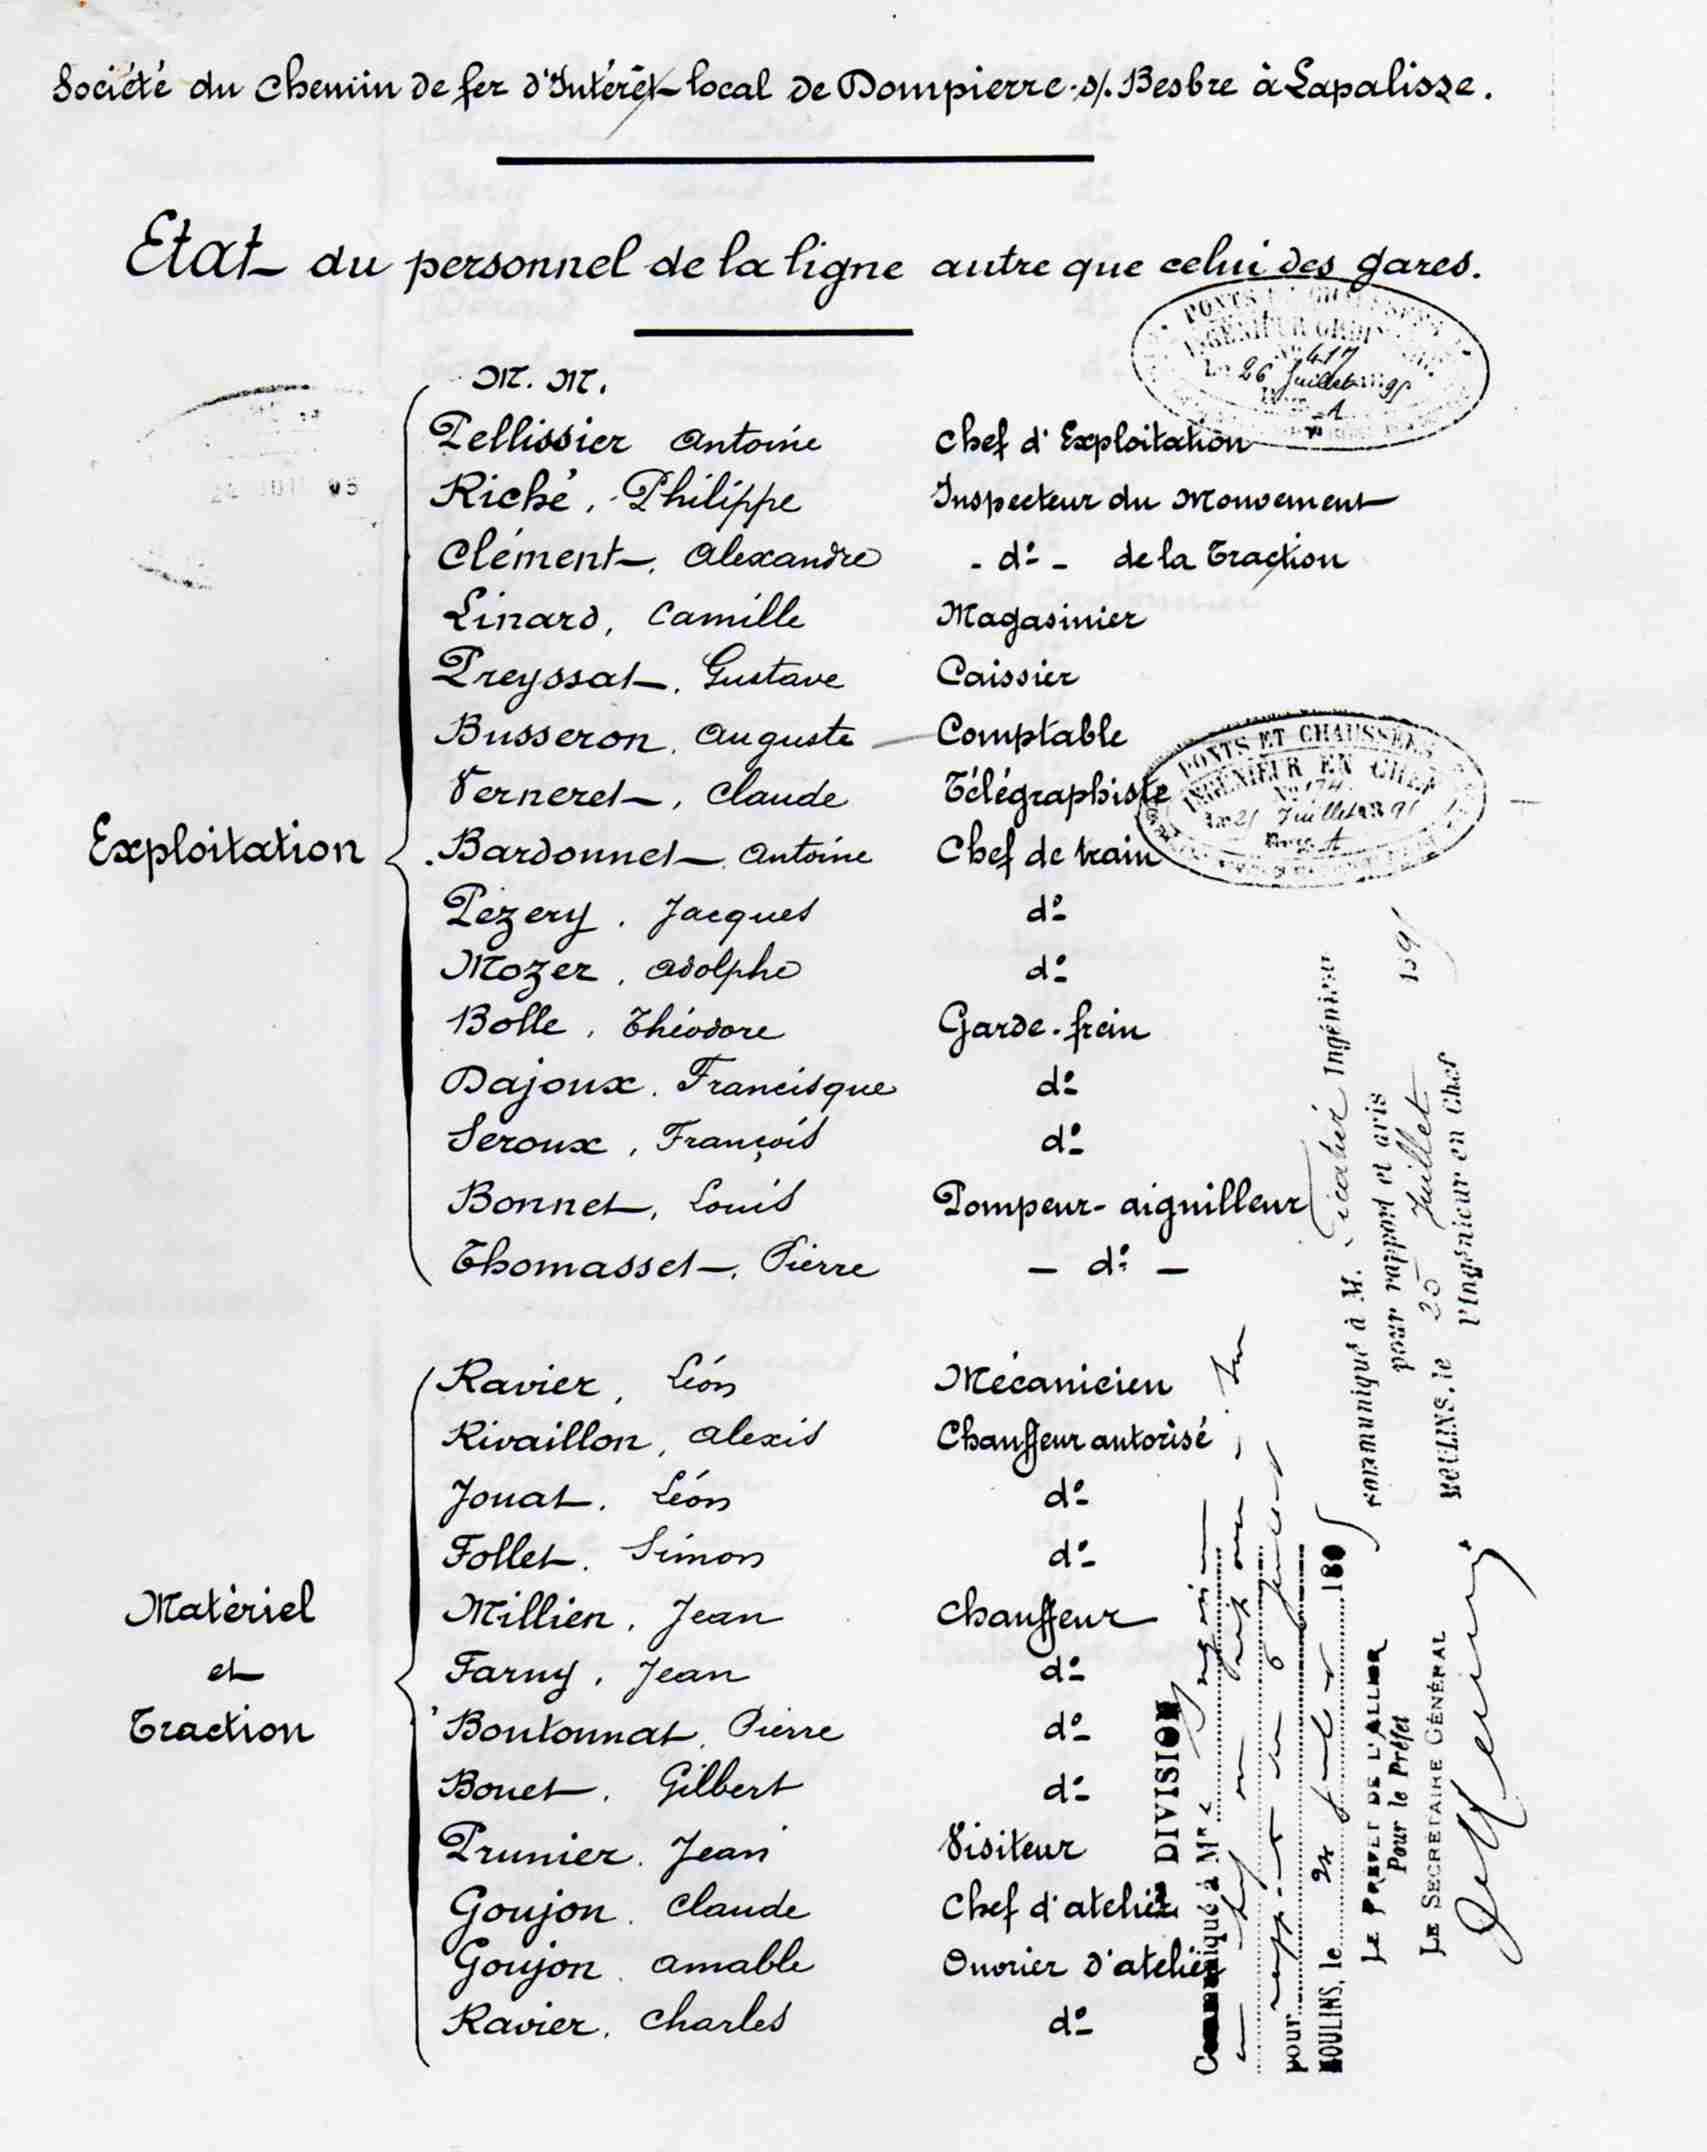 Société du Chemin de fer d'Intérêt local de Dompierre-s/.Besbre à Lapalisse.
Etat du personnel de la ligne autre que celui des gares.
M. M.
Exploitation
Pellissier Antoine Chef d'Exploitation
Riché, Philippe Inspecteur du Mouvement
Clément, Alexandre - dº - de la Traction
Linard, Camille Magasinier
Preyssat, Gustave Caissier
Busseron, Auguste Comptable
Verneret, Claude Télégraphiste
Bardonnet, Antoine Chef de train
Pézery, Jacques dº
Mozer, Adolphe dº
Bolle, Théodore Garde-frein
Dajoux, Francisque dº
Seroux, François dº
Bonnet, Louis Pompeur-aiguilleur
Thomasset, Pierre - dº -
Matériel
et
Traction
Ravier, Léon Mécanicien
Rivaillon, Alexis Chauffeur autorisé
Jouat, Léon dº
Follet, Simon dº
Millien, Jean Chauffeur
Farny, Jean dº
Boutonnat, Pierre dº
Bouet, Gilbert dº
Prunier, Jean Visiteur
Goujon, Claude Chef d'atelier
Goujon, Amable Ouvrier d'atelier
Ravier, Charles dº
PONTS ET CHAUSSÉES
INGÉNIEUR ORDINAIRE
Nº 417
Le 26 Juillet 1895
A
PONTS ET CHAUSSÉES
INGÉNIEUR EN CHEF
Nº 174
Le 25 Juillet 1895
A
Communiqué à M. Ingénieur
pour rapport et avis
MOULINS, le 25 Juillet 1895
l'Ingénieur en Chef
DIVISION
Communiqué à Mr
pour
MOULINS, le 24 189
LE PRÉFET DE L'ALLIER
Pour le Préfet
LE SECRÉTAIRE GÉNÉRAL